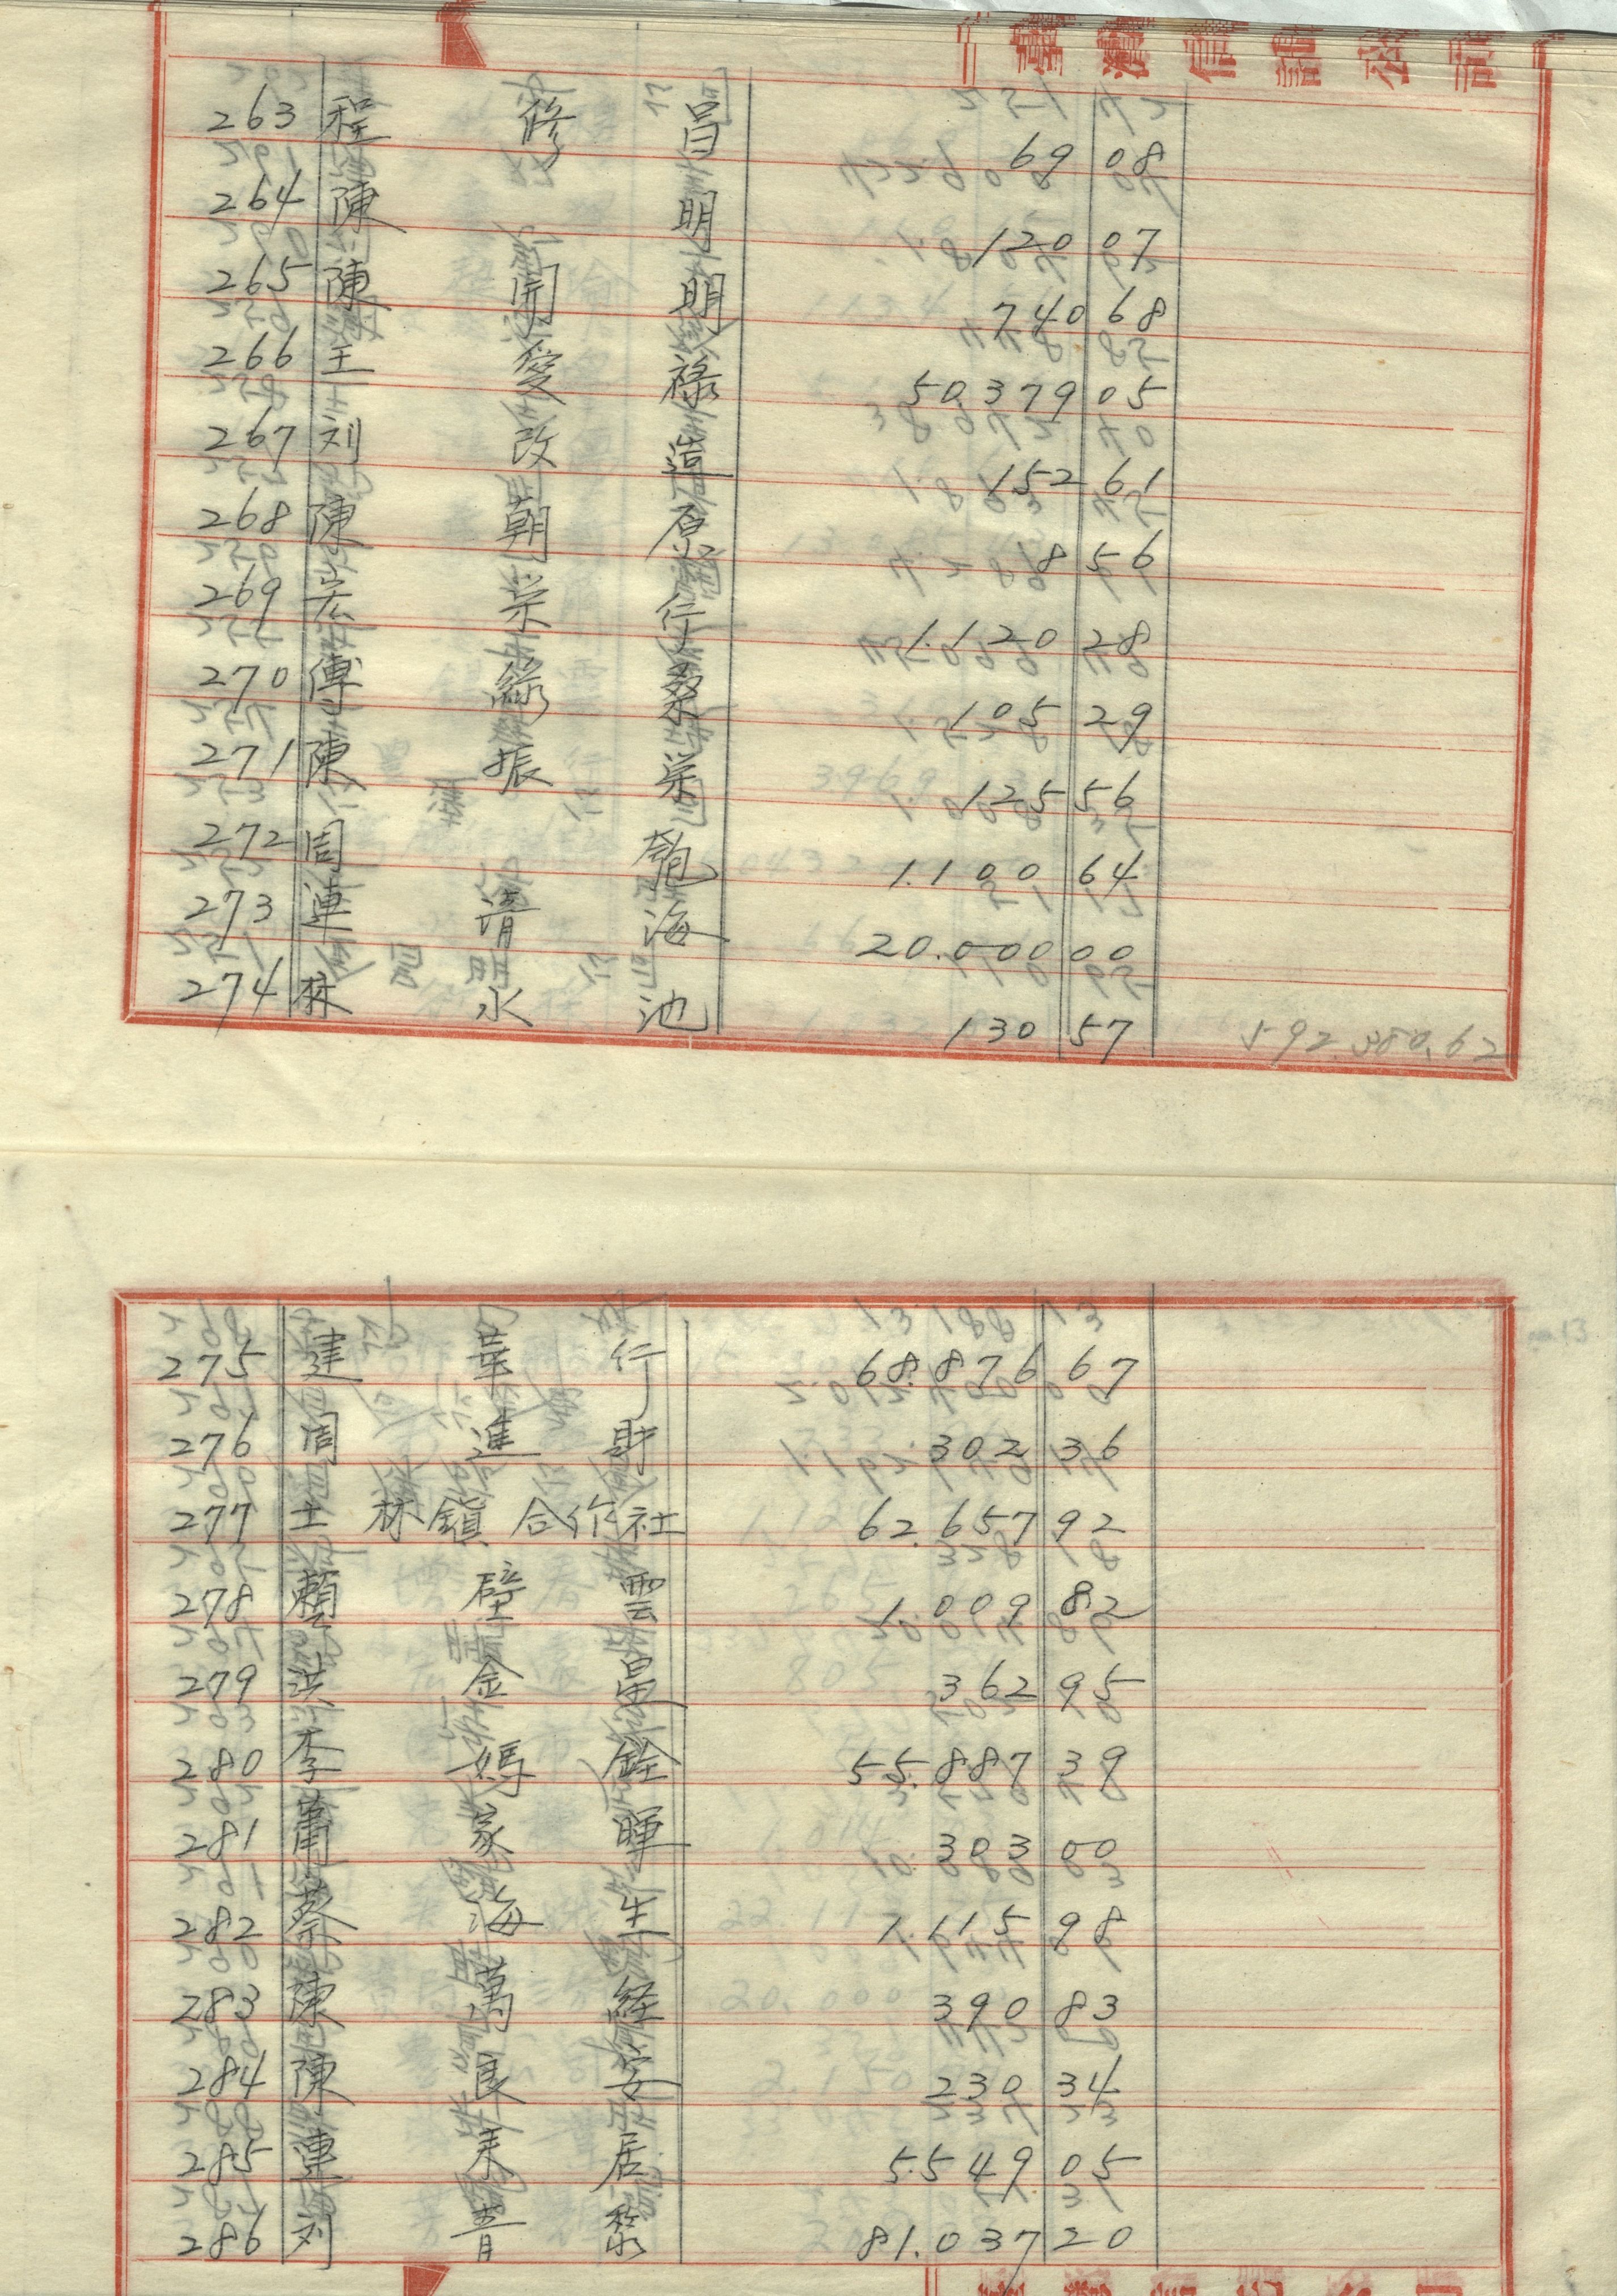 臺灣信託公司
263 程修昌 69 08
264 陳明 120 07
265 陳開明 740 68
266 王愛祿 50.379 05
267 刘改造 152 61
268 陳朝原 18 56
269 宏栄行 1.120 28
270 傅綠桑 105 29
271 陳振栄 125 56
272 周 1.100 64
273 連清海 20.000 00
274 林水池 130 57 592.380.62
275 建華行 68.876 67
276 周進財 302 36
277 士林鎮合作社 62.657 92
278 賴壁雲 1.009 82
279 洪金星 362 95
280 李媽銓 55.887 39
281 蕭家暉 303 00
282 蔡海生 1.115 98
283 陳萬経 390 83
284 陳良安 230 34
285 連未居 5.549 05
286 刘青黎 81.037 20